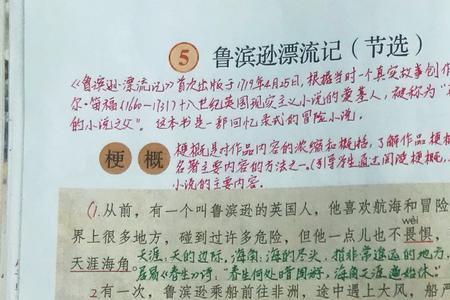 5 鲁滨逊漂流记（节选）
《鲁滨逊·漂流记》首次出版于1719年4月25日，根据当时一个真实故事创作
尔·笛福(1660-1731)十八世纪英国现实主义小说的奠基人，被称为“
的小说之父”。这本书是一部回忆录式的冒险小说。
梗概 梗概是对作品内容的浓缩和概括，了解作品梗概
名著主要内容的方法之一。(引导学生通过阅读梗概，
小说的主要内容.
(1.从前，有一个叫鲁滨逊的英国人，他喜欢航海和冒险
wèi
界上很多地方，碰到过许多危险，但他一点儿也不畏惧，
天涯海角。天涯，天的边际，海角：海的尽头，指非常遥远的地方，
《春生》诗：“春生何处暗周游，海角天涯遍始休。”
2有一次，鲁滨逊乘船前往非洲，途中遇上大风，船